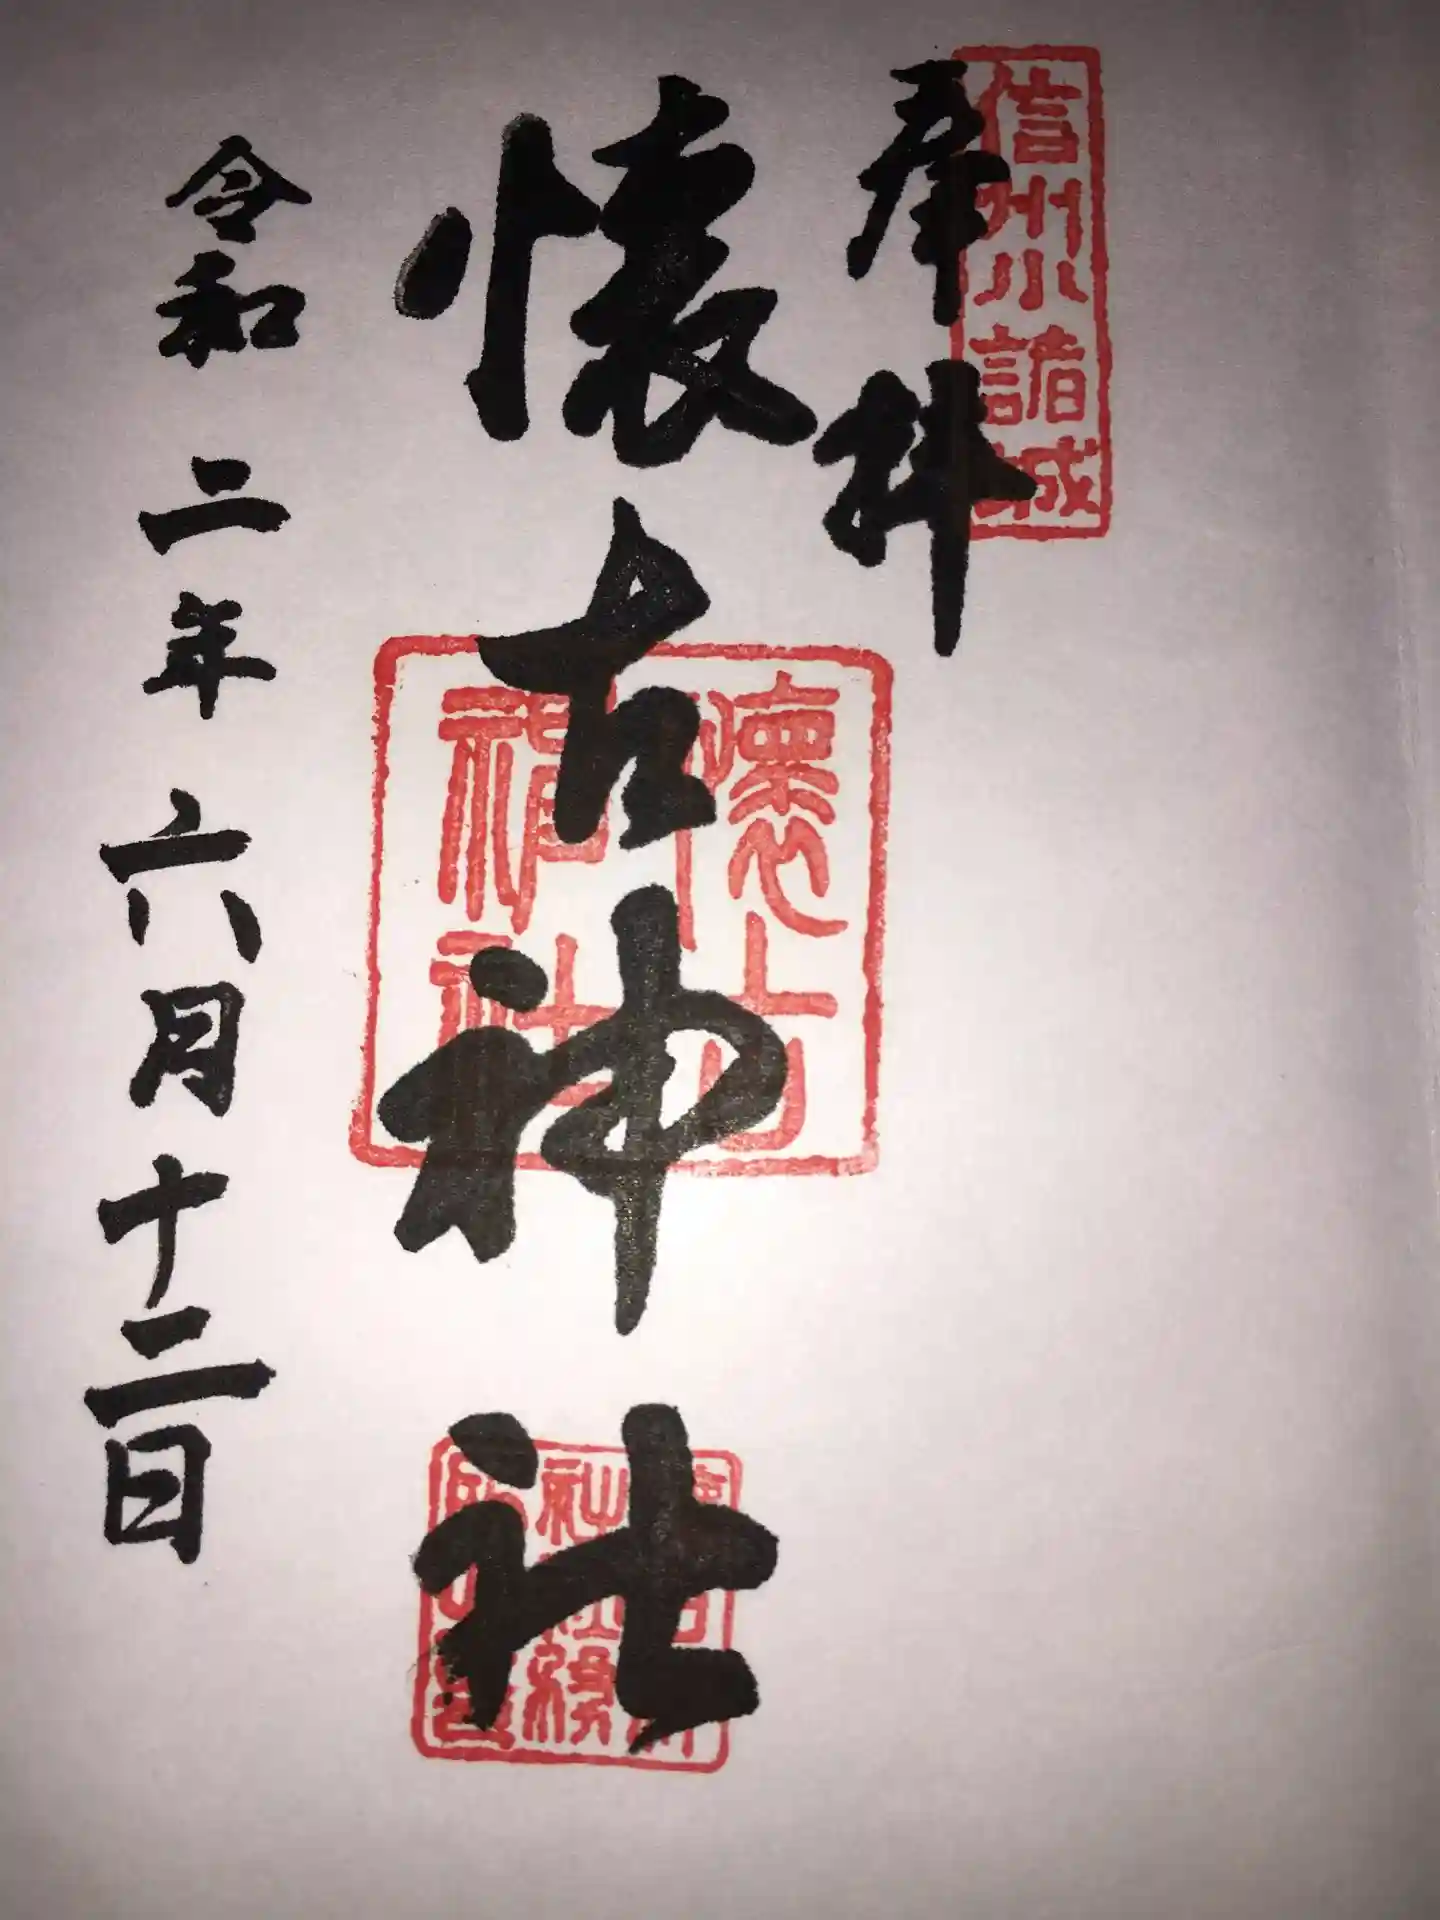 信州小諸城
奉拝
懐古神社
懐古
神社
令和二年六月十二日